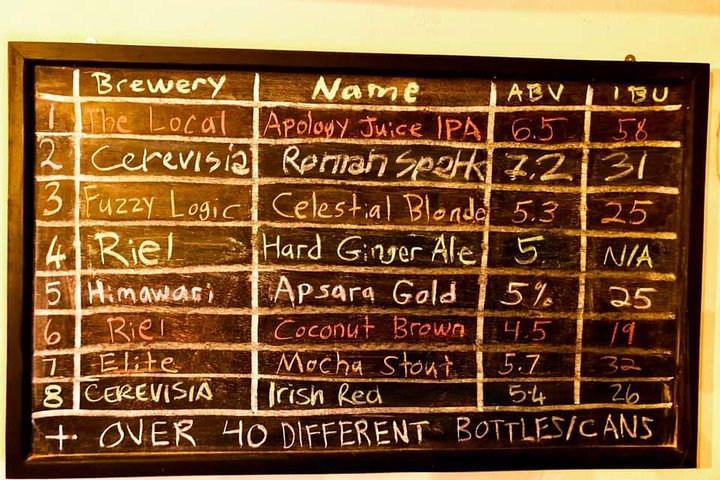 Brewery Name ABV IBU
1 The Local Apology Juice IPA 6.5 58
2 Cerevisia Roman Spork 7.2 31
3 Fuzzy Logic Celestial Blonde 5.3 25
4 Riel Hard Ginger Ale 5 N/A
5 Himawari Apsara Gold 5% 25
6 Riel Coconut Brown 4.5 19
7 Elite Mocha Stout 5.7 32
8 CEREVISIA Irish Red 5.4 26
+ OVER 40 DIFFERENT BOTTLES/CANS